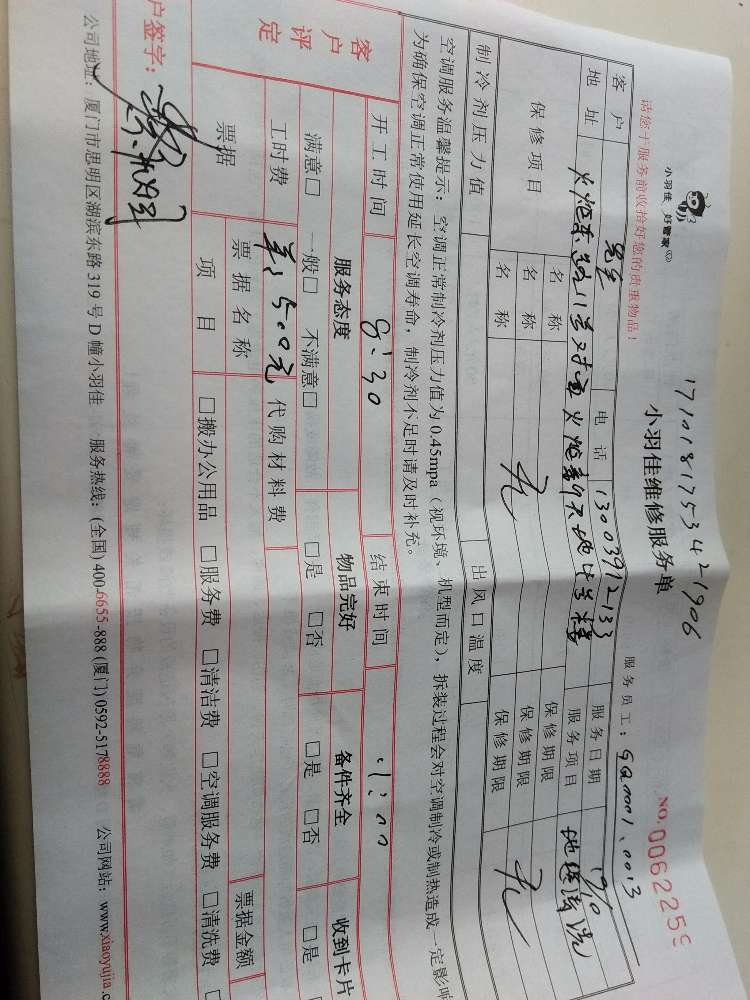 小羽佳 好管家
17101817534 21906
小羽佳维修服务单
NO.006225
请您于服务前收拾好您的贵重物品！
服务员工：GQ0001、0013
客户 电话 13003912133 服务日期
地址 服务项目 地毯清洗
保修项目 名称 无 保修期限 无
名称 保修期限
名称 保修期限
制冷剂压力值 出风口温度
空调服务温馨提示：空调正常制冷剂压力值为0.45mpa（视环境、机型而定），拆装过程会对空调制冷或制热造成一定影响
为确保空调正常使用延长空调寿命，制冷剂不足时请及时补充。
开工时间 8:30 结束时间
客户评定 服务态度 物品完好 备件齐全 收到卡片
满意□ 一般□ 不满意□ □是 □否 □是 □否 □是
工时费 500元 代购材料费
票据 票据名称 票据金额
项目 □搬办公用品 □服务费 □清洁费 □空调服务费 □清洗费 □
户签字：
公司地址：厦门市思明区湖滨东路319号D幢小羽佳 服务热线：(全国)400-6655-888 (厦门)0592-5178888 公司网站：www.xiaoyujia.c